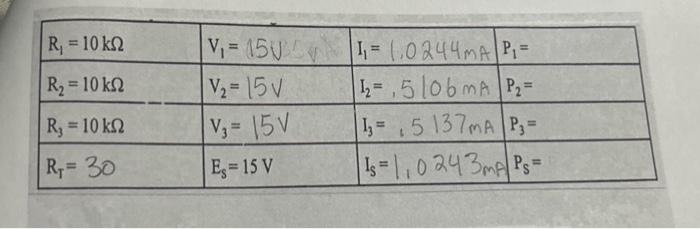 R₁ = 10 kΩ V₁ = 15V I₁ = 1.0244mA P₁ =
R₂ = 10 kΩ V₂ = 15V I₂ = .5106mA P₂ =
R₃ = 10 kΩ V₃ = 15V I₃ = .5137mA P₃ =
R_T = 30 E_S = 15 V I_S = 1.0243mA P_S =